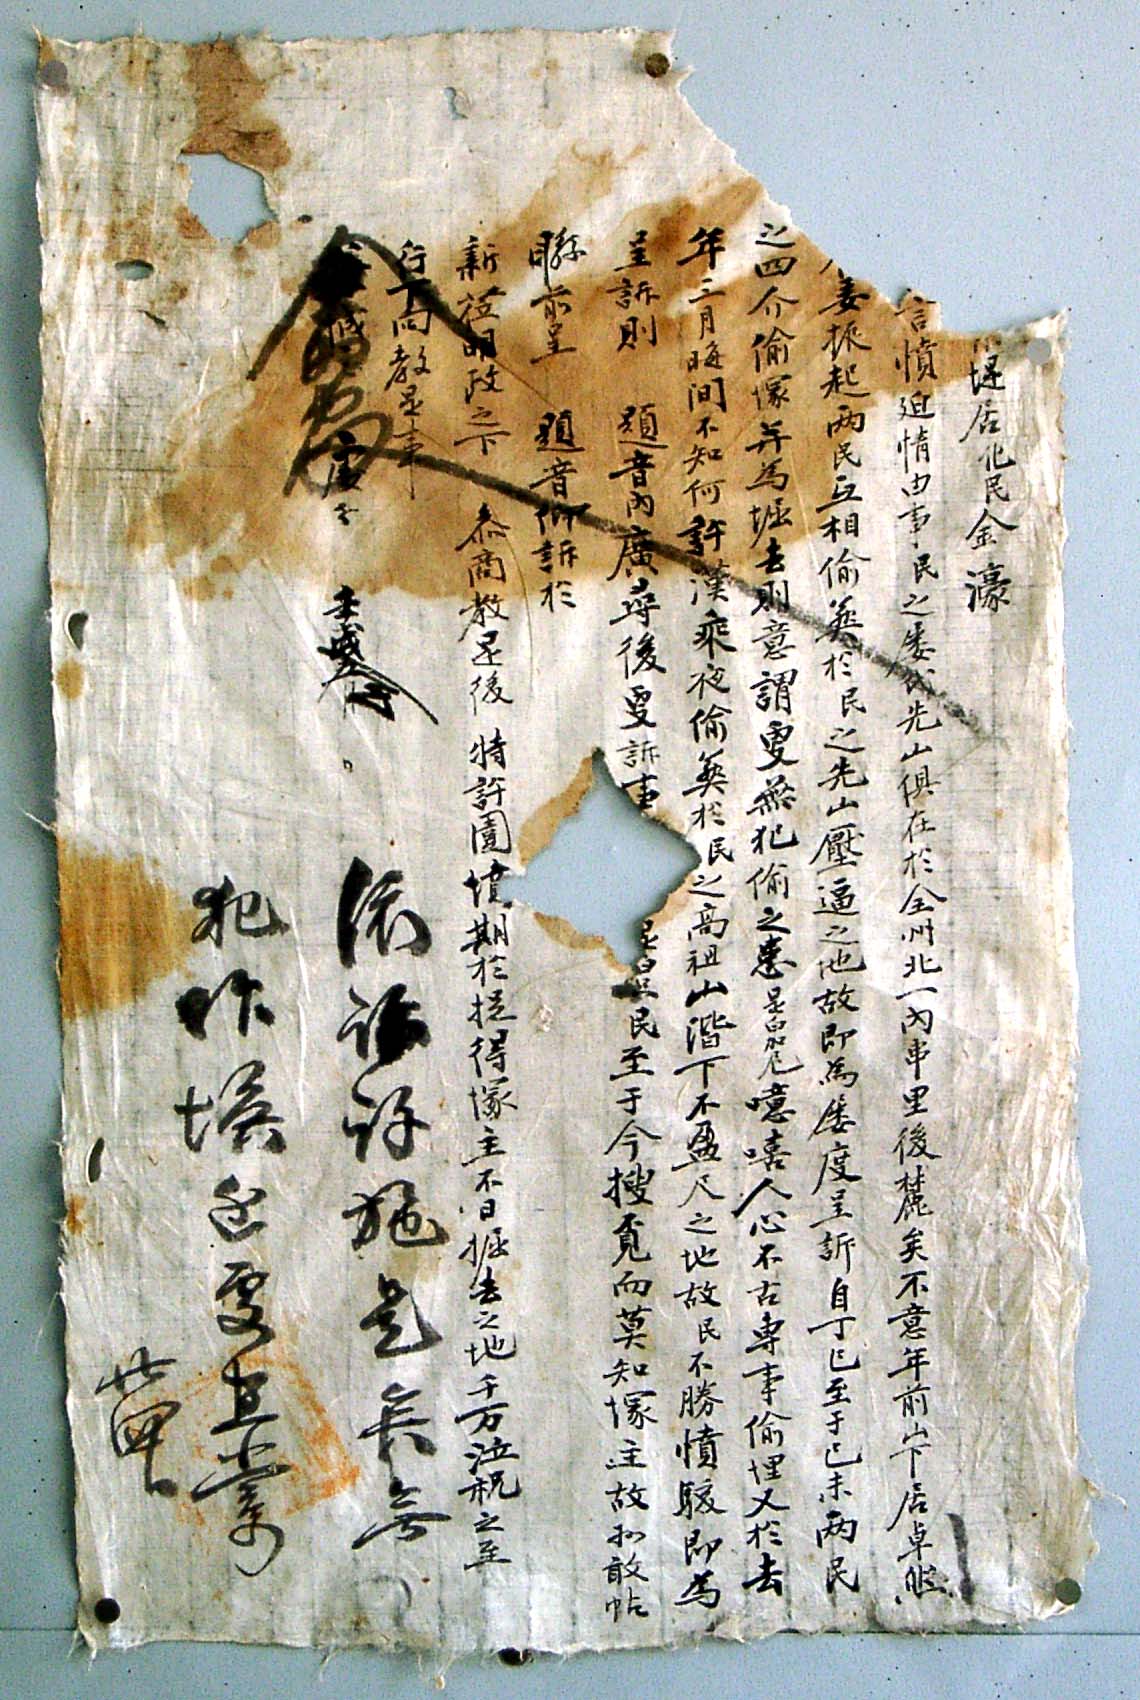 堤居化民金濠
言憤迫情由事民之屡代先山俱在於全州北一內串里後麓矣不意年前山下居卓熙
姜振起两民互相偷葬於民之先山壓逼之地故即為屡度呈訴自丁巳至于己未两民
之四介偷塚并為堀去則意謂更無犯偷之患是白如尼噫嘻人心不古專事偷埋又於去
年三月晦間不知何許漢乘夜偷葬於民之高祖山階下不盈尺之地故民不勝憤駭即為
呈訴則 題音內廣尋後更訴事 是置民至于今搜覓而莫知塚主故玆敢帖
聯前呈 題音仰訴於
新莅明政之下 叅商敎是後 特許圓墳期於捉得塚主不日掘去之地千万泣祝之至
行下向敎是事
依訴許施是矣無
犯作塚 更 事